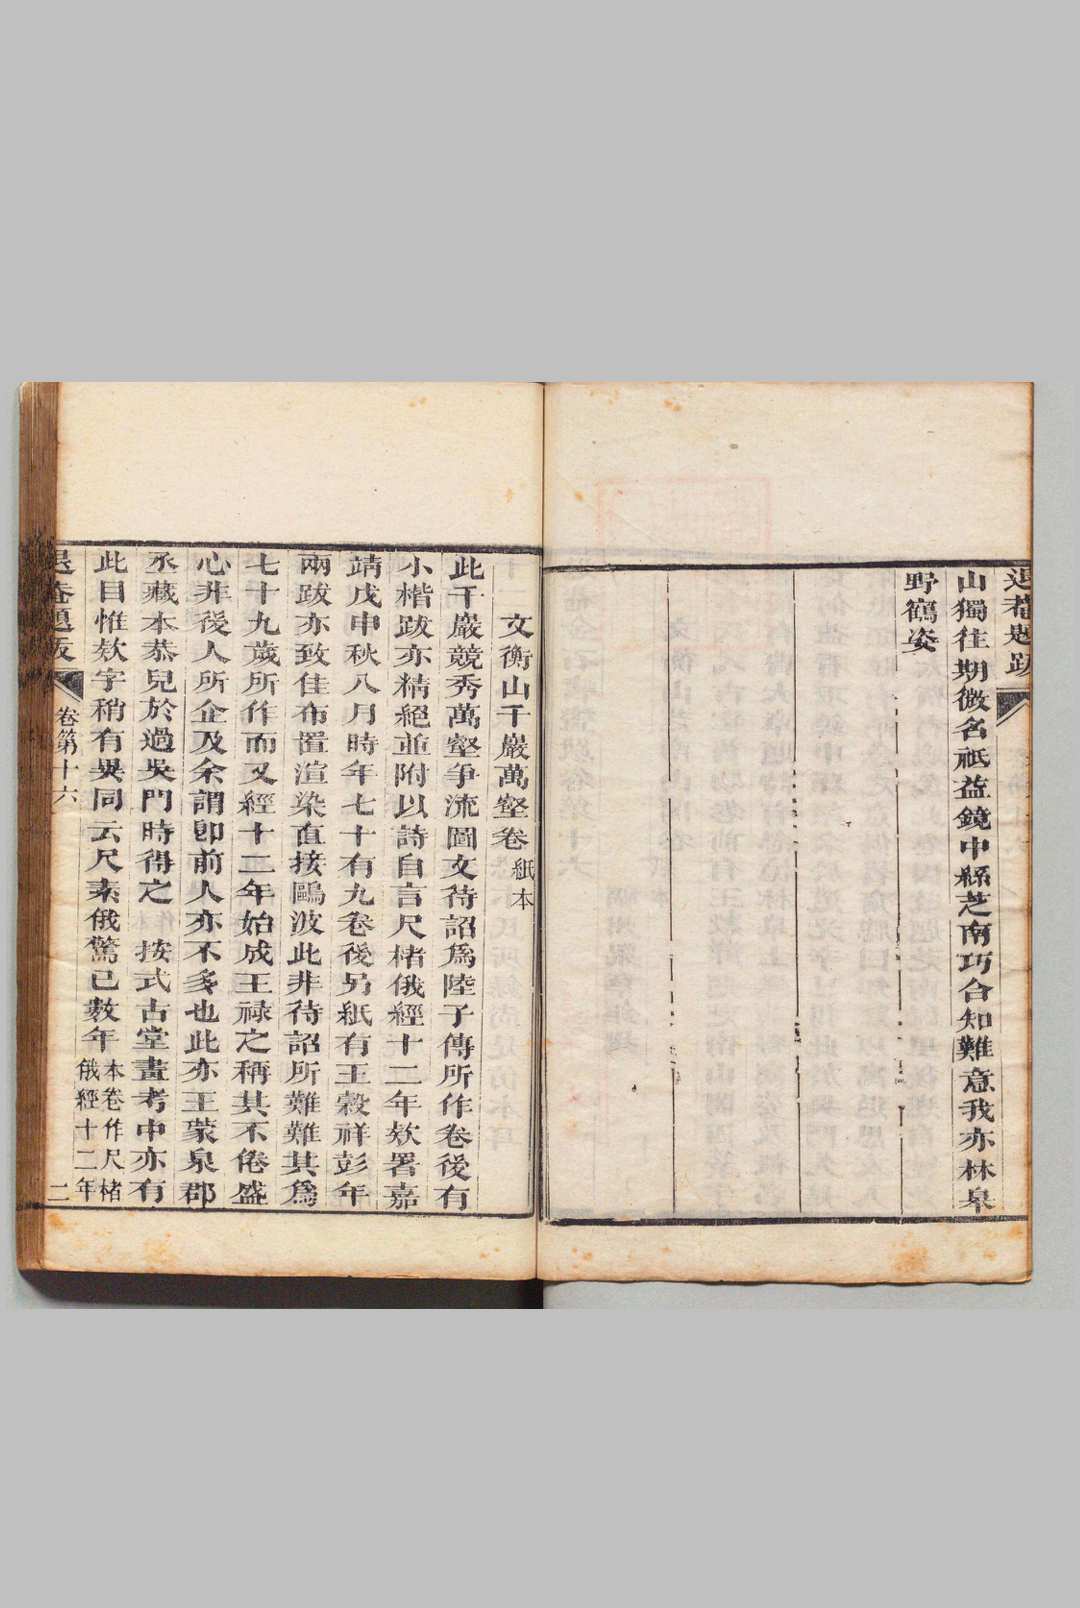 退菴題跋
山獨往期微名祇益鏡中絲芝南巧合知難意我亦林皋
野鶴姿
文衡山千巖萬壑卷紙本
此千巖競秀萬壑爭流圖文待詔爲陸子傳所作卷後有
小楷跋亦精絕並附以詩自言尺楮俄經十二年欵署嘉
靖戊申秋八月時年七十有九卷後另紙有王穀祥彭年
兩跋亦致佳布置渲染直接鷗波此非待詔所難難其爲
七十九歲所作而又經十二年始成王祿之稱其不倦盛
心非後人所企及余謂卽前人亦不多也此亦王蒙泉郡
丞藏本恭兒於過吳門時得之 按式古堂畫考中亦有
此目惟欵字稍有異同云尺素俄驚已數年本卷作尺楮俄經十二年
退菴題跋
卷第十六
二